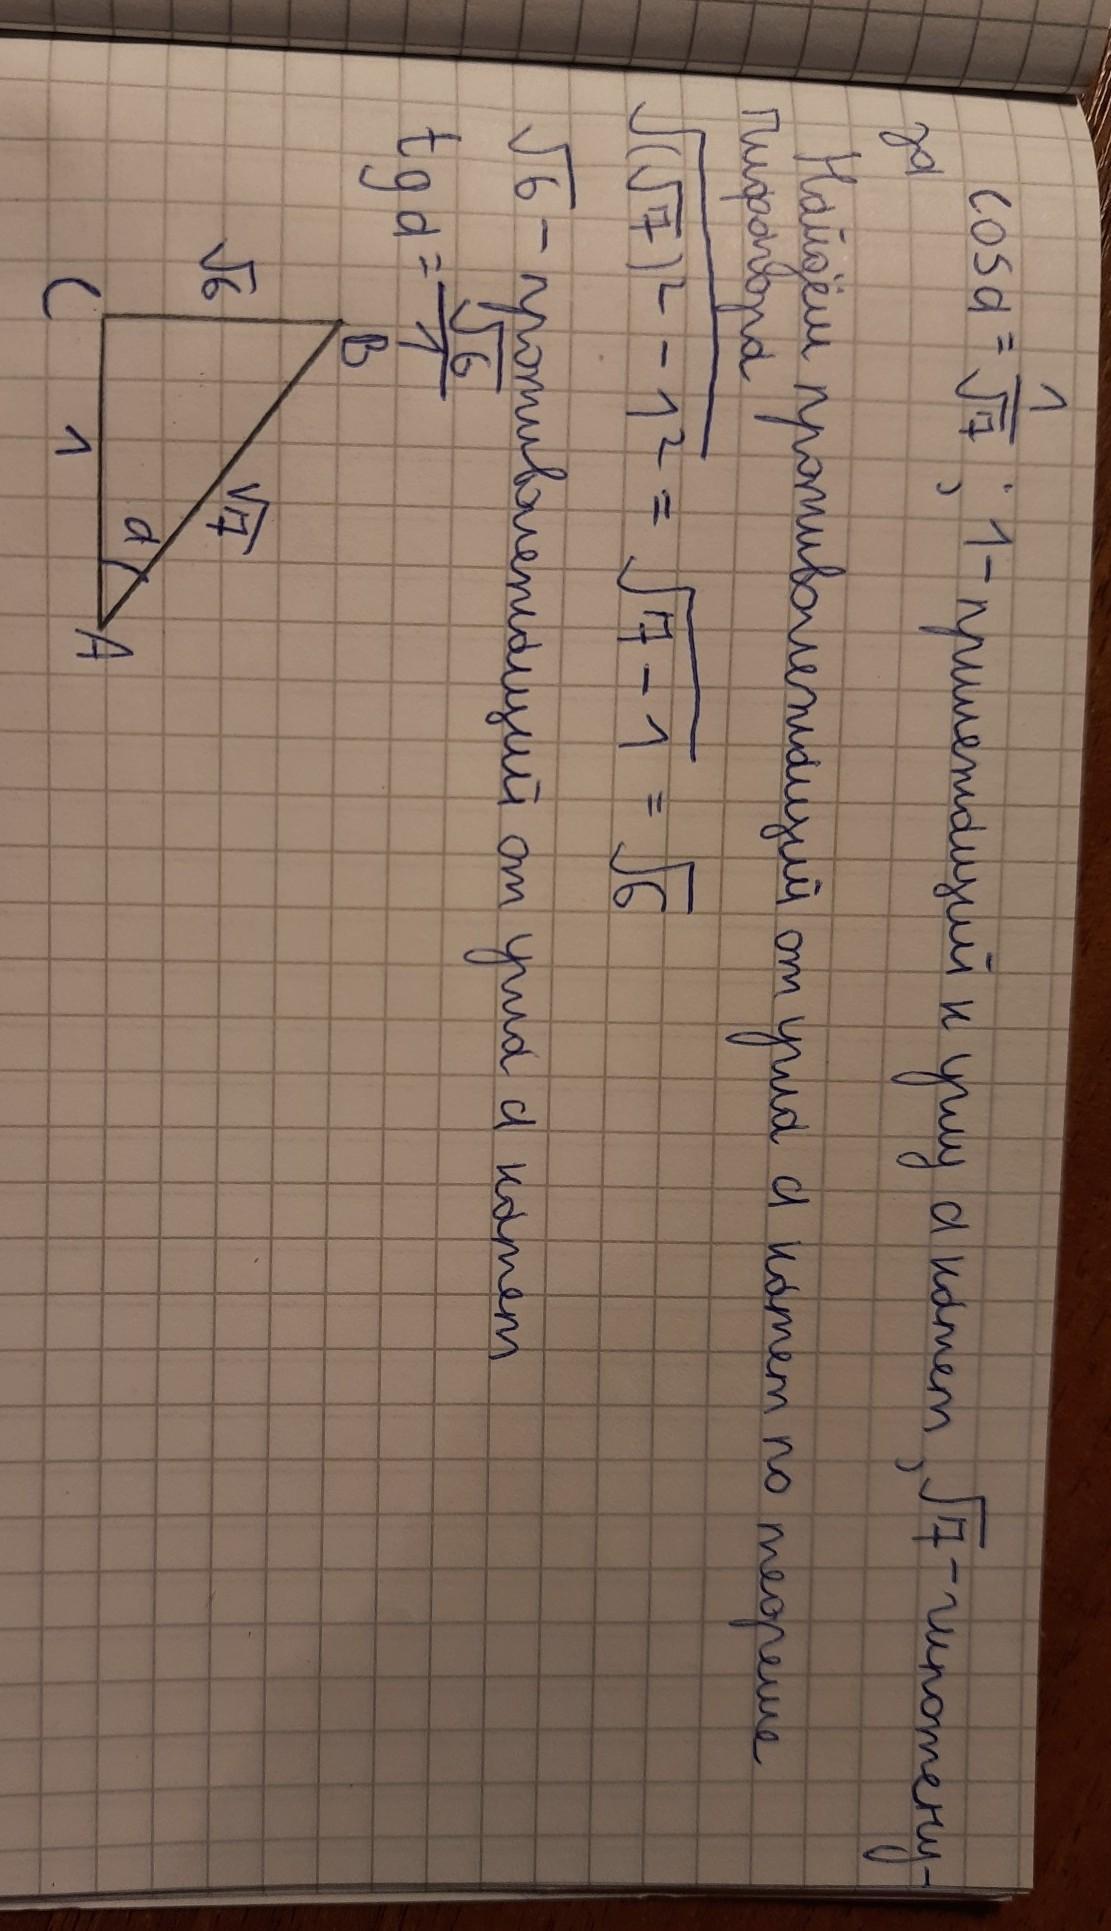 cos α = 1/√7 ; 1 - прилежащий к углу α катет, √7 - гипотену-
за
Найдём противолежащий от угла α катет по теореме
Пифагора
√((√7)² - 1²) = √(7 - 1) = √6
√6 - противолежащий от угла α катет
tg α = √6/1
B
√6
√7
α
C
1
A